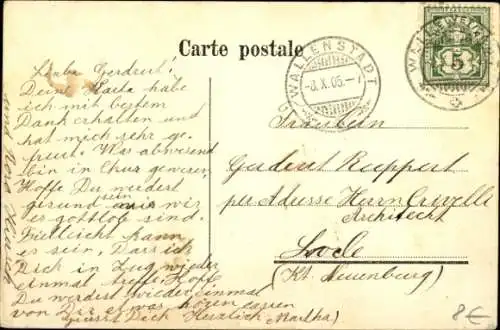 Carte postale
WALLENSTADT
-8.X.05.-
5
Liebe Gerdrut!
Deine Karte habe
ich mit bestem
Dank erhalten und
hat mich sehr ge-
freut. Was abwesend
bin in Chur gewesen.
Hoffe Du werdest
gesund sein wie wir
es gottlob sind.
Vielleicht kann
es sein, Dass ich
Dich in Zug wieder
einmal treffe. Hoffe
Du werdest wieder einmal
von Dir etwas hören lassen
Grüsst Dich Herzlich Martha)
Fräulein
Gertrut Ruppert
per Adresse Herrn Crivelli
Architecht
Locle
(Kt. Neuenburg)
8€